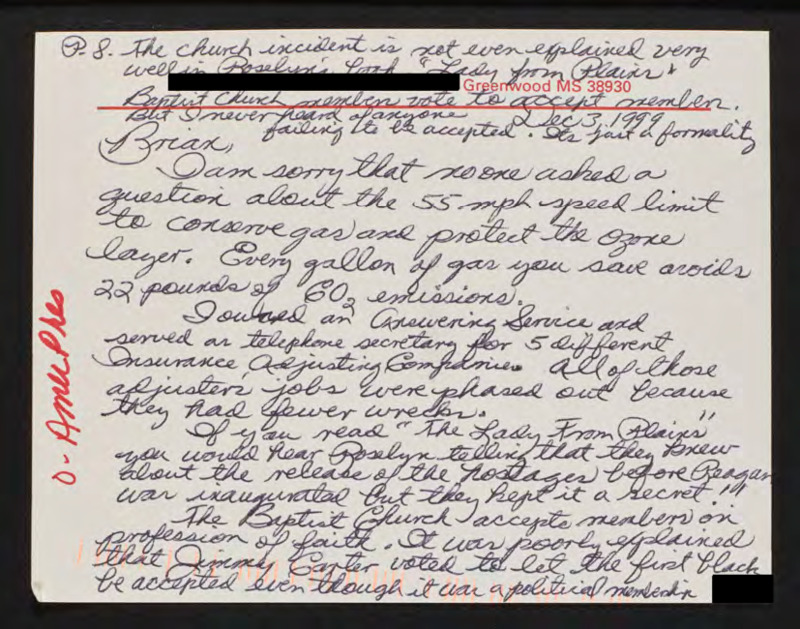 P.S. The church incident is not even explained very
well in Roselyn's book "Lady from Plains"
Greenwood MS 38930
Baptist Church members vote to accept members.
But I never heard of anyone Dec 3, 1999
failing to be accepted. Its just a formality
Brian,
I am sorry that no one asked a
question about the 55 mph speed limit
to conserve gas and protect the ozone
layer. Every gallon of gas you save avoids
22 pounds of CO2 emissions.
I owned an Answering Service and
served as telephone secretary for 5 different
Insurance Adjusting Companies. All of those
adjusters' jobs were phased out because
they had fewer wrecks.
If you read "The Lady From Plains"
you would hear Roselyn telling that they knew
about the release of the hostages before Reagan
was inaugurated but they kept it a secret!!
The Baptist Church accepts members on
profession of faith. It was poorly explained
that Jimmy Carter voted to let the first black
be accepted even though it was a political membership
O-AmerPres